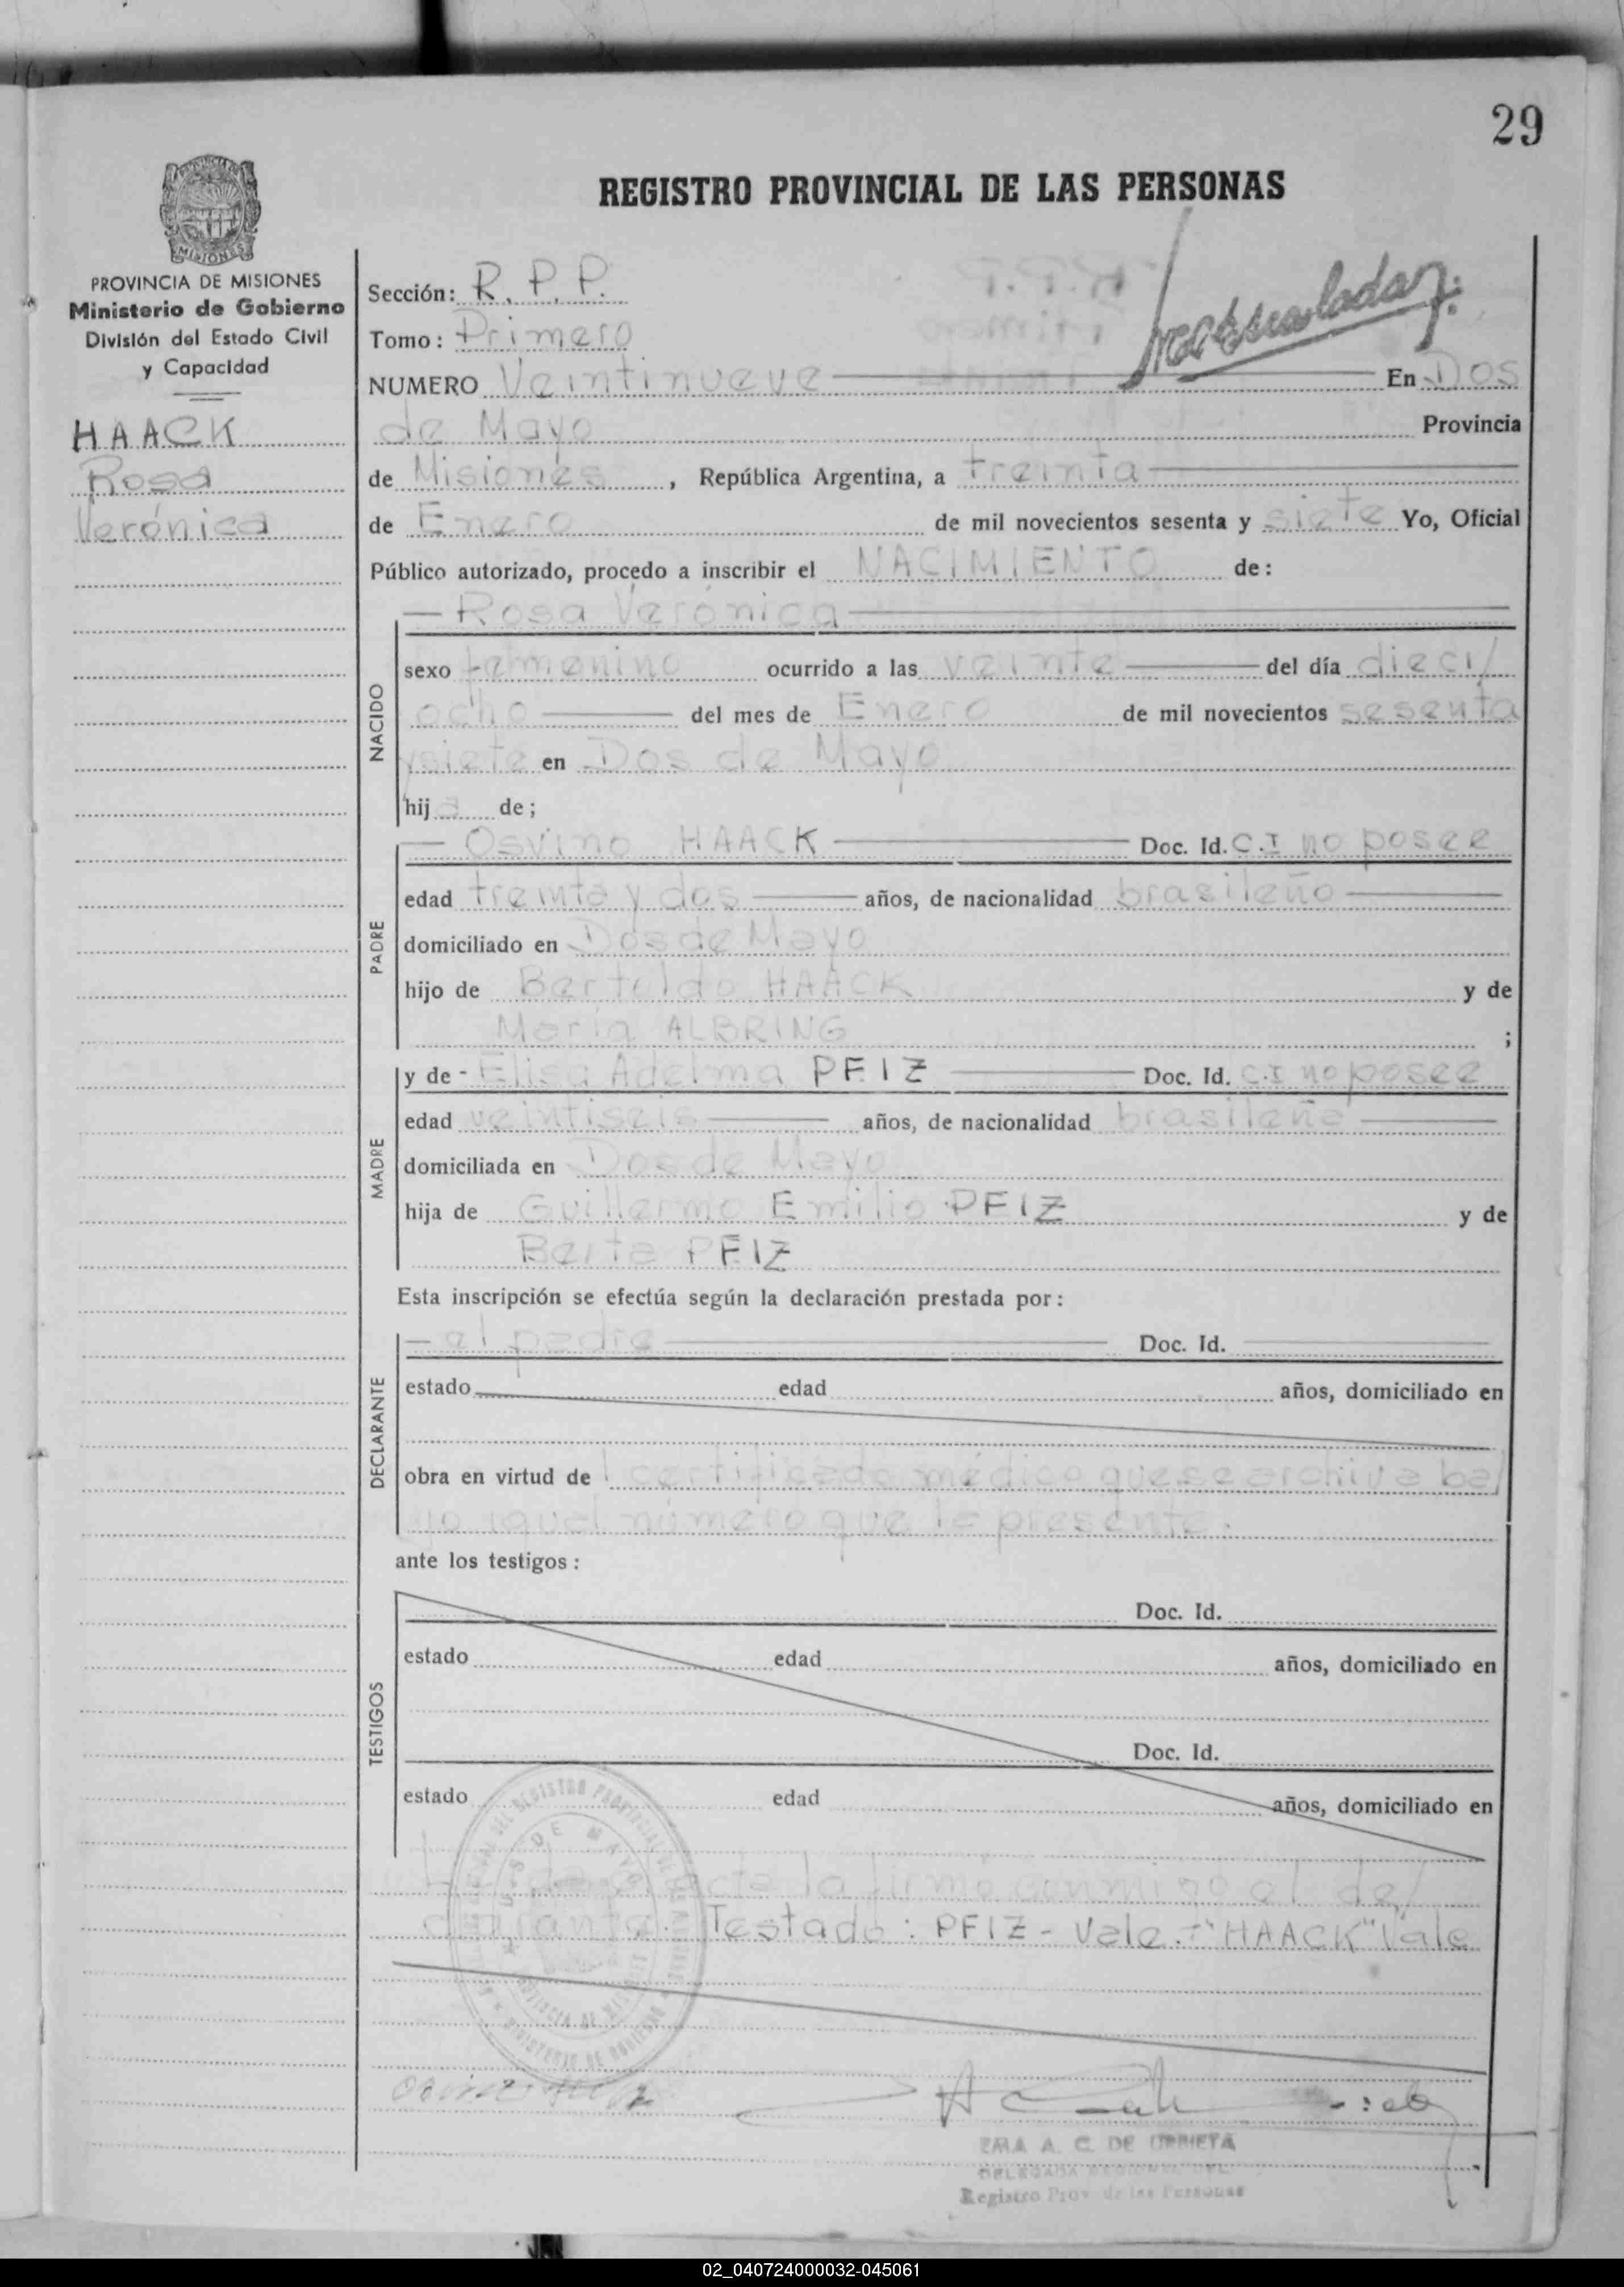 29
REGISTRO PROVINCIAL DE LAS PERSONAS
MISIONES
PROVINCIA DE MISIONES
Ministerio de Gobierno
División del Estado Civil
y Capacidad
HAACK
Rosa
Verónica
Sección: R. P. P.
Tomo: Primero
NUMERO Veintinueve En Dos
de Mayo Provincia
de Misiones, República Argentina, a treinta
de Enero de mil novecientos sesenta y siete Yo, Oficial
Público autorizado, procedo a inscribir el NACIMIENTO de:
— Rosa Verónica
NACIDO
sexo femenino ocurrido a las veinte del día dieci/
ocho del mes de Enero de mil novecientos sesenta
ysiete en Dos de Mayo
hija de;
PADRE
— Osvino HAACK Doc. Id. C.I no posee
edad treinta y dos años, de nacionalidad brasileño
domiciliado en Dos de Mayo
hijo de Bertoldo HAACK y de
María ALBRING ;
MADRE
y de - Elisa Adelma PFIZ Doc. Id. C.I no posee
edad veintiseis años, de nacionalidad brasileña
domiciliada en Dos de Mayo
hija de Guillermo Emilio PFIZ y de
Berta PFIZ
Esta inscripción se efectúa según la declaración prestada por:
DECLARANTE
— el padre Doc. Id.
estado edad años, domiciliado en
obra en virtud del certificado médico que se archiva ba/
jo igual número que la presente.
ante los testigos:
TESTIGOS
Doc. Id.
estado edad años, domiciliado en
Doc. Id.
estado edad años, domiciliado en
acta la firmó conmigo el de/
clarante. Testado: PFIZ - Vale.- "HAACK" Vale
DOS DE MAYO
MINISTERIO DE GOBIERNO
EMA A. C. DE URRIETA
DELEGADA REGIONAL DEL
Registro Prov. de las Personas
02_040724000032-045061